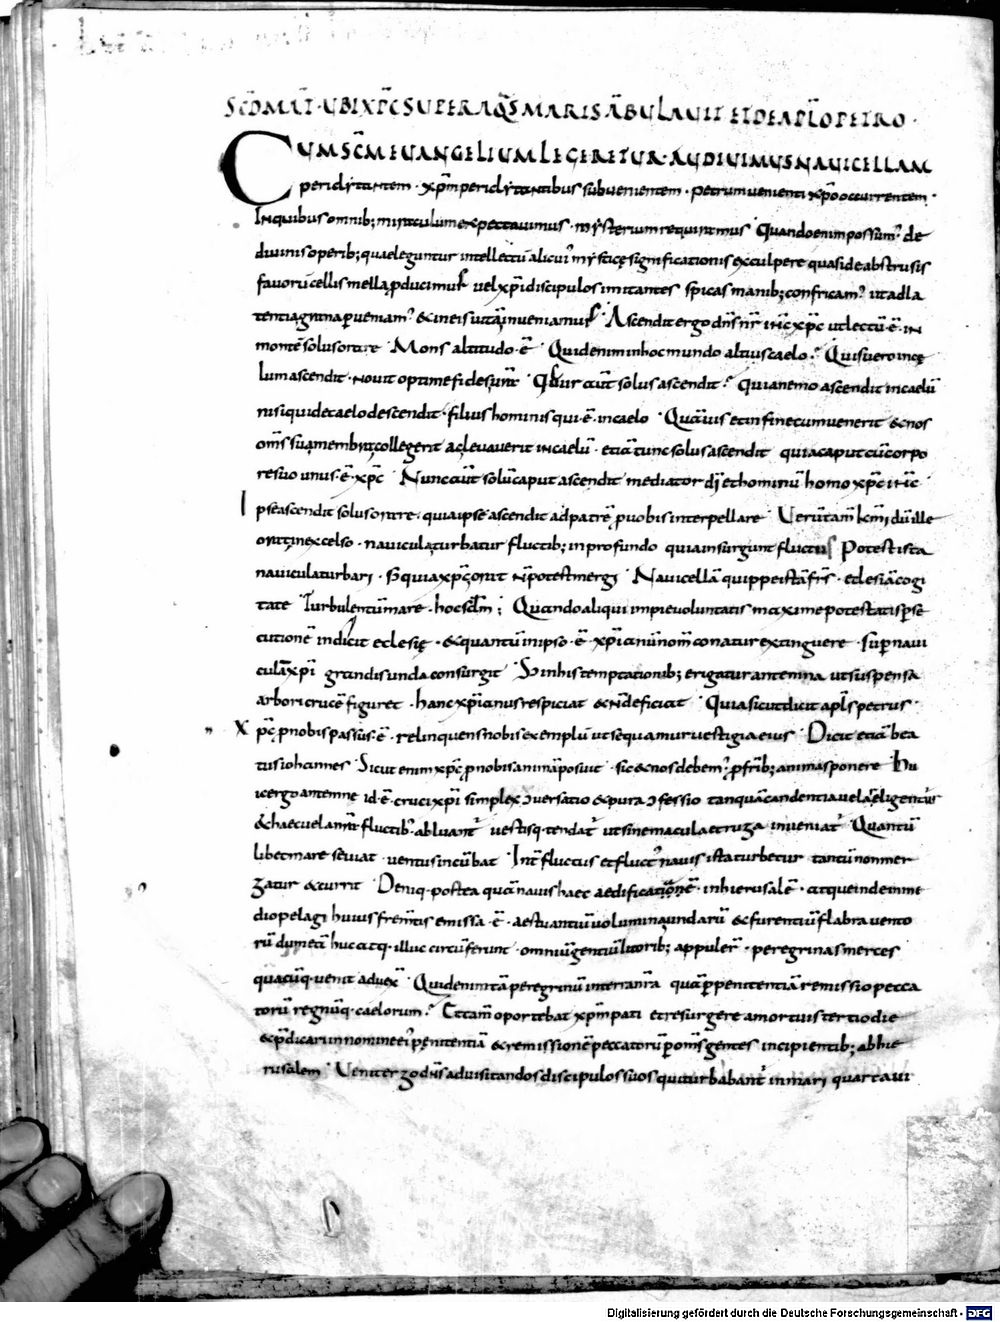 SCḎ MAT̄ · UBI XP̄C SUPER AQ̄S MARIS ĀBULAUIT ET DE AP̄LO PETRO ·
CUM SC̄M EUANGELIUM LEGERETUR · AUDIUIMUS NAUICELLAM
periclytantem · xp̄m periclytantibus subuenientem · petrum uenienti xp̄o occurrentem ·
In quibus omnib; miraculum expectauimus · mysterium requiramus · Quando enim possum᷒ de
diuinis operib; quae leguntur intellectū alicui᷒ mysticę significationis exculpere quasi de abstrusis
fauorū cellis mella ꝓducimus uel xp̄i discipulos imitantes spicas manib; confricam᷒ ut ad la
tentia grana ꝑueniam᷒ & in eis uitā inueniamus · Ascendit ergo dn̄s nr̄ ih̄c xp̄c ut lectū · ē · in
montē solus orare · Mons altitudo · ē · Quid enim in hoc mundo altius caelo? Quis uero in cę
lum ascendit · nouit optime fides nr̄a · Cur aūt solus ascendit? Quia nemo ascendit in caelū
nisi qui de caelo descendit · filius hominis qui · ē · in caelo · Quāuis et in fine cum uenerit & nos
om̄s sua membra collegerit ac leuauerit in caelū · etiā tunc solus ascendit quia caput cū corpo
re suo unus · ē · xp̄c · Nunc aūt solū caput ascendit mediator dī et hominū homo xp̄c ih̄c
Ipse ascendit solus orare · quia ipse ascendit ad patrē ꝓ uobis interpellare · Uerūtam̄ km̄i dū ille
orat in excelso · nauicula turbatur fluctib; in profundo quia insurgunt fluctus Potest ista
nauicula turbari · s; quia xp̄c orat n̄ potest mergi · Nauicellā quippe istā fr̄s · eclesiā cogi
tate Turbulentū mare · hoc sc̄lm; Quando aliqui impie uoluntatis maxime potestatis ꝑse
cutionē indicit eclesię · & quantū in ipso · ē · xp̄ianū nom̄ conatur extinguere · sup̄ naui
culā xp̄i grandis unda consurgit · S; in his temptationib; erigatur antemna ut suspensa
arbori crucē figuret · hanc xp̄ianus respiciat & n̄ deficiat · Quia sicut dicit apl̄s petrus ·
Xp̄c ꝓ nobis passus · ē · relinquens nobis exemplū ut sequamur uestigia eius · Dicit etiā bea
tus iohannes · Sicut enim xp̄c ꝓ nobis animā posuit · sic & nos debem᷒ ꝓ frīb; animas ponere · Hu
ic ergo antemne id · ē · cruci xp̄i simplex ɔuersatio & pura ɔfessio tanquā candentia uela eligentur
& haec uel amari fluctib᷒ abluant᷒ uestisq· tendat᷒ ut sine macula et ruga inueniat᷒ · Quantū
libet mare seuiat · uentus incūbat · Int̄ fluctus et fluct᷒ nauis ista turbetur tantū non mer
gatur & currit · Deniq· postea quā nauis haec aedificata · ē · in hierusalē · atque inde in me
dio pelagi huius frem̄tis emissa · ē · aestuantiū uolumina undarū & furentiū flabra uento
rū dum etiā huc atq· illuc circūferunt · omniū gentiū litorib; appuler̄ · peregrinas merces
quacūq· uenit aduex̄ · Quid enim tā peregrinū in terra nr̄a quā ꝑ penitentiā remissio pecca
torū regnūq· caelorum? Et tam̄ oportebat xp̄m pati et resurgere a mortuis tertio die
& p̄dicari in nomine ei᷒ penitentiā & remissionē peccatorū ꝑ om̄s gentes incipientib; ab hie
rusalem · Uenit ergo dn̄s ad uisitandos discipulos suos qui turbabant᷒ in mari quarta ui
Digitalisierung gefördert durch die Deutsche Forschungsgemeinschaft - DFG